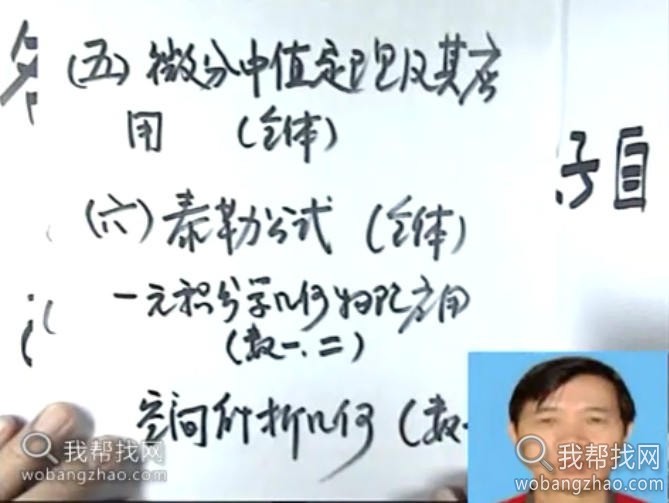 (五)微分中值定理及其应
用 (全体)
目
(六)泰勒公式(全体)
一元积分学几何物理应用
(数一.二)
空间解析几何(数一
我帮找网
wobangzhao.com
我帮找网
wobangzhao.com